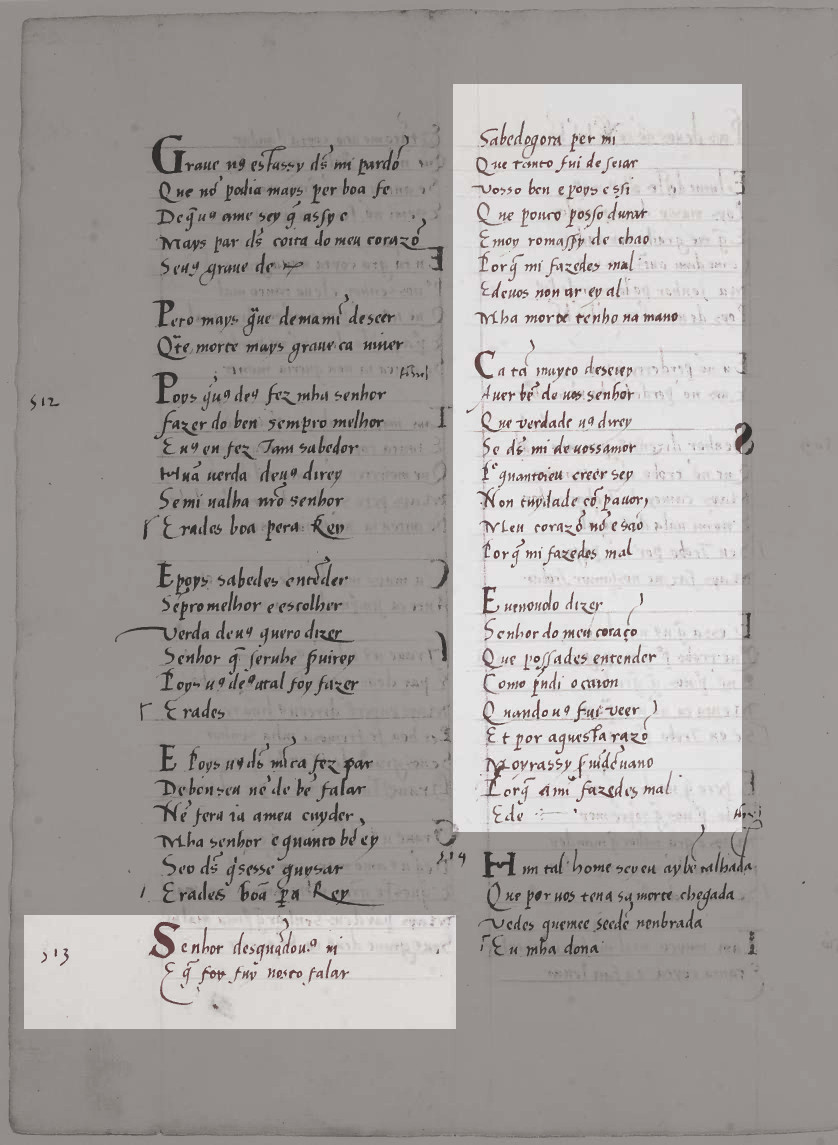 Graue ug estassy ds̃ mi pardõ
Que nõ podia mays per boa fe
De q̃ ug ame sey q̃ assy e
Mays par ds̃ coita do meu corazõ
Seug graue de
Pero mays g̃ue demamĩ deseer
Q̃te morte mays graue ca viuer
512
Poys q̃ug deg fez mha senhor
fazer do ben sempro melhor
Eug en fez Tam sabedor
Hũa uerda deug direy
Semi ualha nr̃o senhor
Erades boa pera Rey
Epoys sabedes entẽder
Sẽpromelhor e escolher
Verda deug quero dizer
Senhor q̃ seruhe s̃uirey
Poys ug degatal foy fazer
Erades
E Poys ugds̃ nũca fez par
Debonseu nẽ de bẽ falar
Nẽ fera ia ameu cuyder
Mha senhor e quanto bẽ ey
Seo ds̃ q̃sesse guysar
Erades boã pa Rey
513
Senhor desquãdoug ui
E q̃ foy fuy uosco falar
Sabedogora per mi
Que tanto fui deseiar
Vosso ben e poys essi
Que pouco posso durar
Emoy romassy de chao
Porq̃ mi fazedes mal
Edeuos non ar ey al
Mha morte tenho na mano
Ca tã muyto deseiey
Auer bẽ de uos senhor
Que verdade ug direy
Se ds̃ mi de uossamor
Po quantoieu creer sey
Non cuydade cõ pauor
Meu corazõ nõ e sao
Porq̃ mi fazedes mal
E uenouolo dizer
Senhor do meu coraçõ
Que possades entender
Como p̃ndi ocaion
Quando ug fui ueer
Et por aquesta razõ
Moyrassy s̃uĩdẽuano
Porq̃ amĩ fazedes mal
Ede
514
Hun tal home sey eu ay bẽ talhada
Que por uos tena sa morte chegada
Vedes quemee seedẽ nenbrada
Eu mha dona